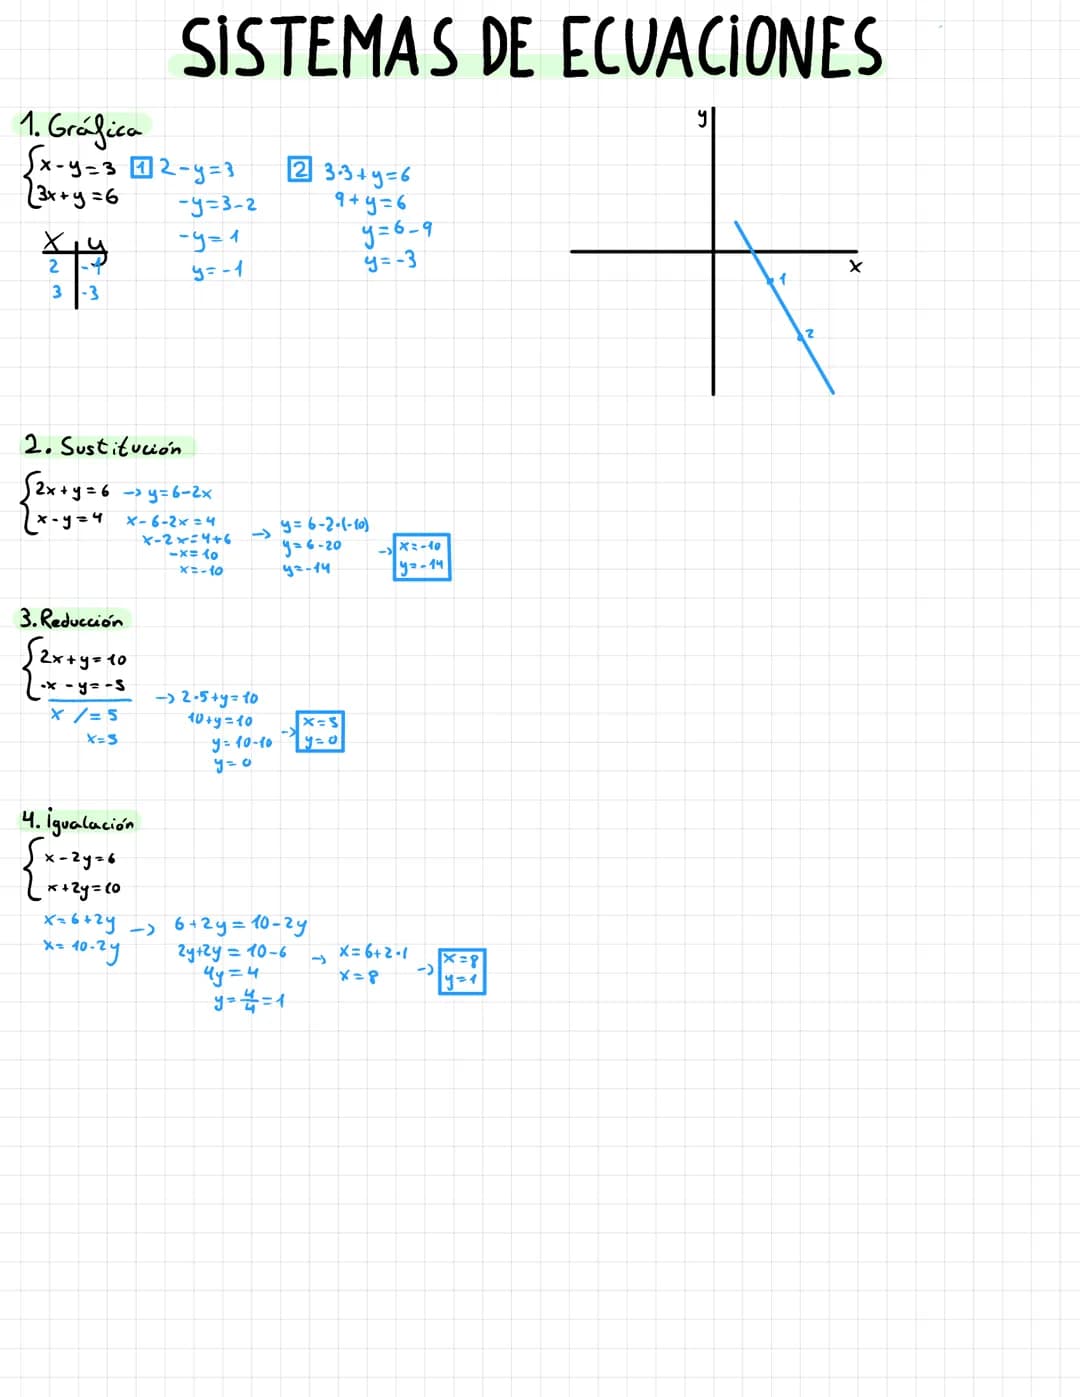 SISTEMAS DE ECUACIONES
1. Gráfica
{x-y=3
{3x+y=6
x | y
2 | -1
3 | -3
1 2-y=3
-y=3-2
-y=1
y=-1
2 3·3+y=6
9+y=6
y=6-9
y=-3
y
x
1
2
2. Sustitución
{2x+y=6 -> y=6-2x
{x-y=4
x-6-2x=4
x-2x=4+6
-x=10
x=-10
-> y=6-2·(-10)
y=6-20
y=-14
-> x=-10
y=-14
3. Reducción
{2x+y=10
{-x-y=-5
x /=5
x=5
-> 2·5+y=10
10+y=10
y=10-10
y=0
-> x=5
y=0
4. Igualación
{x-2y=6
{x+2y=10
x=6+2y
x=10-2y
-> 6+2y=10-2y
2y+2y=10-6
4y=4
y=4/4=1
-> x=6+2·1
x=8
-> x=8
y=1